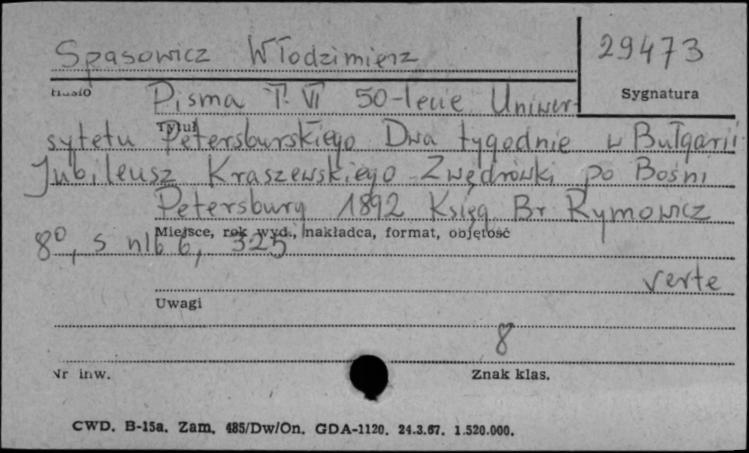 Spasowicz Włodzimierz
29473
Hasło
Sygnatura
Pisma T. VI 50-lecie Uniwer-
Tytuł
sytetu Petersburskiego Dwa tygodnie w Bułgarii
Jubileusz Kraszewskiego Zwędrówki po Bośni
Petersburg 1892 Księg. Br Rymowicz
Miejsce, rok wyd., nakładca, format, objętość
8°, s nlb 6, 325
verte
Uwagi
8
Nr inw.
Znak klas.
CWD. B-15a. Zam. 485/Dw/On. GDA-1120. 24.3.67. 1.520.000.